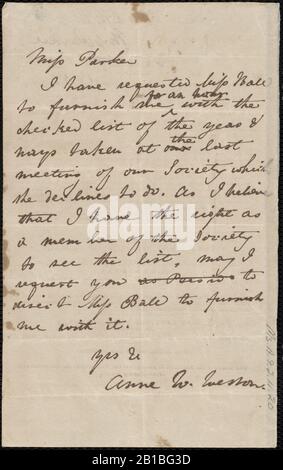 Miss Parker
I have requested Miss Ball
to furnish me with the
checked list of the yeas &
nays taken at our the last
meeting of our Society which
she declines to do. As I believe
that I have the right as
a member of the Society
to see the list, may I
request you to
direct Miss Ball to furnish
me with it.
yrs &
Anne W. Weston.
alamy
Image ID: 2B1BG3D
www.alamy.com